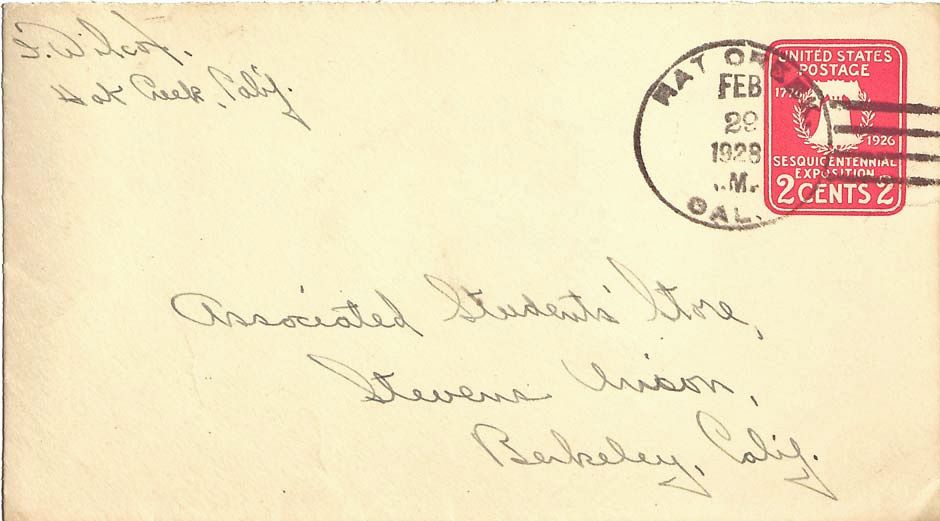 F. Wilcox.
Hat Creek, Calif.
HAT CREEK,
FEB
29
1928
.M.
CAL.
UNITED STATES
POSTAGE
1776
1926
SESQUICENTENNIAL
EXPOSITION
2 CENTS 2
Associated Students' Store,
Stevens Union,
Berkeley, Calif.